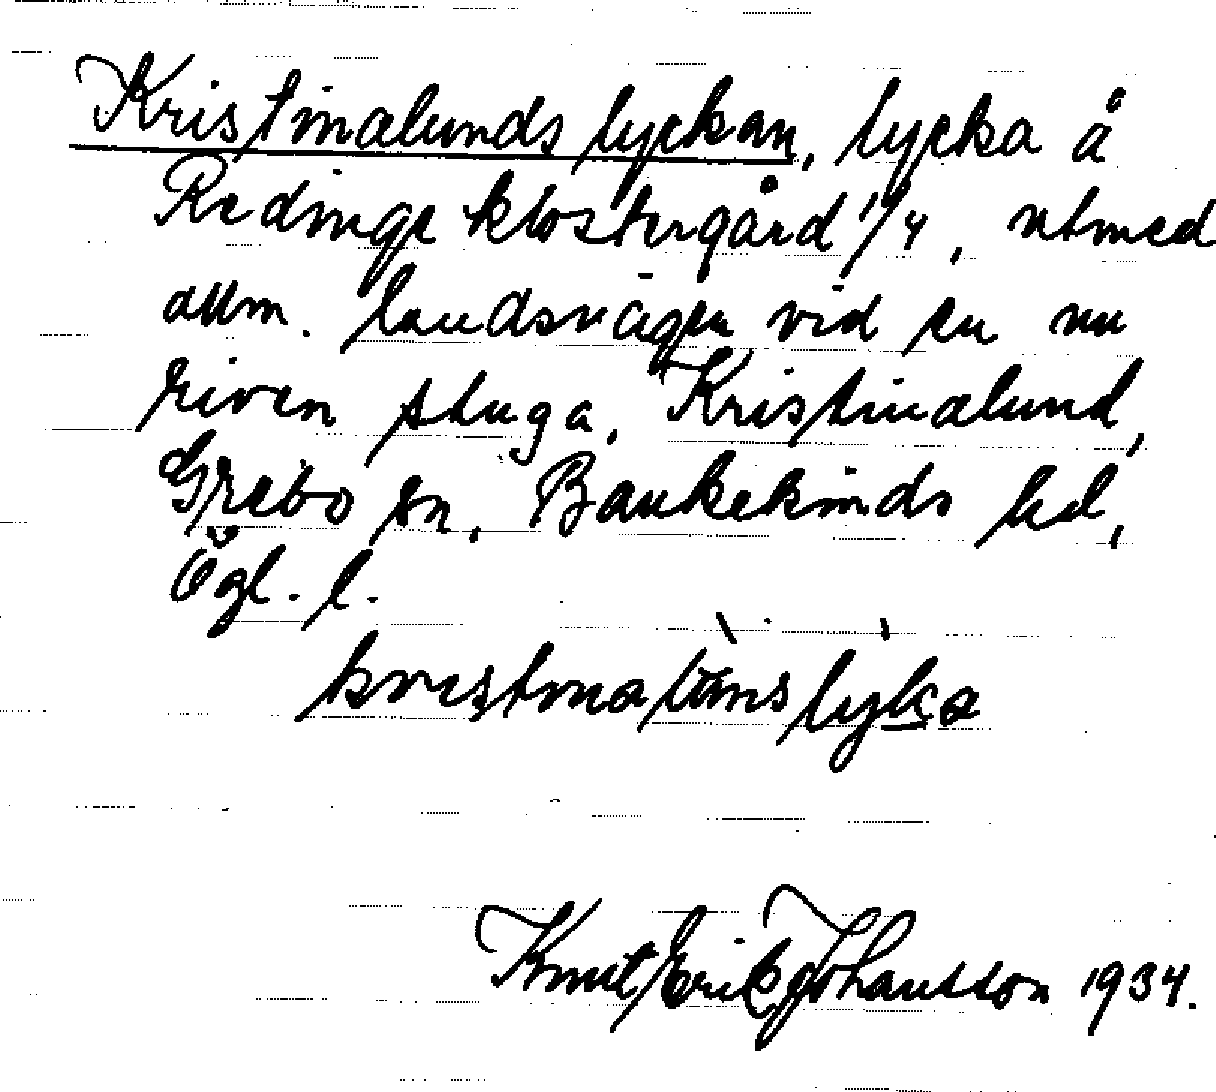 Kristinalundslyckan, lycka å
Redinge klostergård 1/4, utmed
allm. landsvägen vid en nu
riven stuga, Kristinalund,
Grebo sn, Bankekinds hd,
Ögl. l.
Knut Erik Johansson 1934.